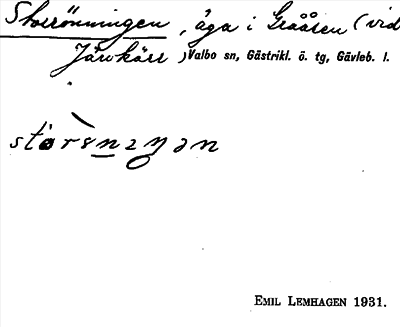 Storrönningen, äga i Grååsen (vid
Järvkärr) Valbo sn, Gästrikl. ö. tg, Gävleb. l.
EMIL LEMHAGEN 1931.